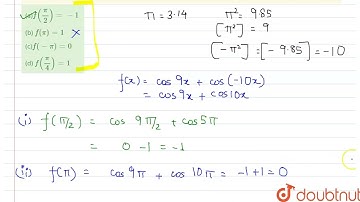 (a) f(π/2) = -1
(b) f(π) = 1 ×
(c) f(-π) = 0
(d) f(π/4) = 1
π = 3·14 π² = 9.85
[π²] = 9
[-π²] = [-9.85] = -10
f(x) = cos 9x + cos(-10x)
= cos 9x + cos 10x
(i) f(π/2) = cos 9π/2 + cos 5π
= 0 - 1 = -1
(ii) f(π) = cos 9π + cos 10π = -1 + 1 = 0
doubtnut